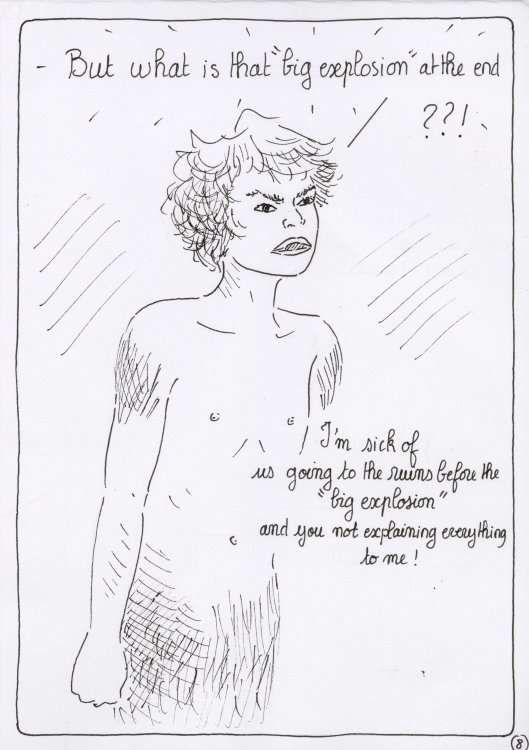 - But what is that "big explosion" at the end
??!
I'm sick of
us going to the ruins before the
"big explosion"
and you not explaining everything
to me!
8